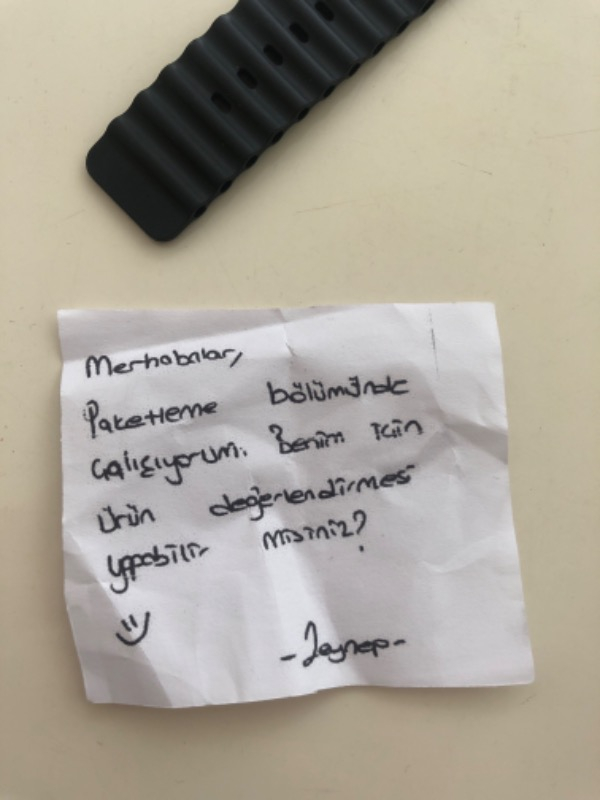 Merhabalar,
Paketleme bölümünde
çalışıyorum. Benim için
ürün değerlendirmesi
yapabilir misiniz?
-Zeynep-